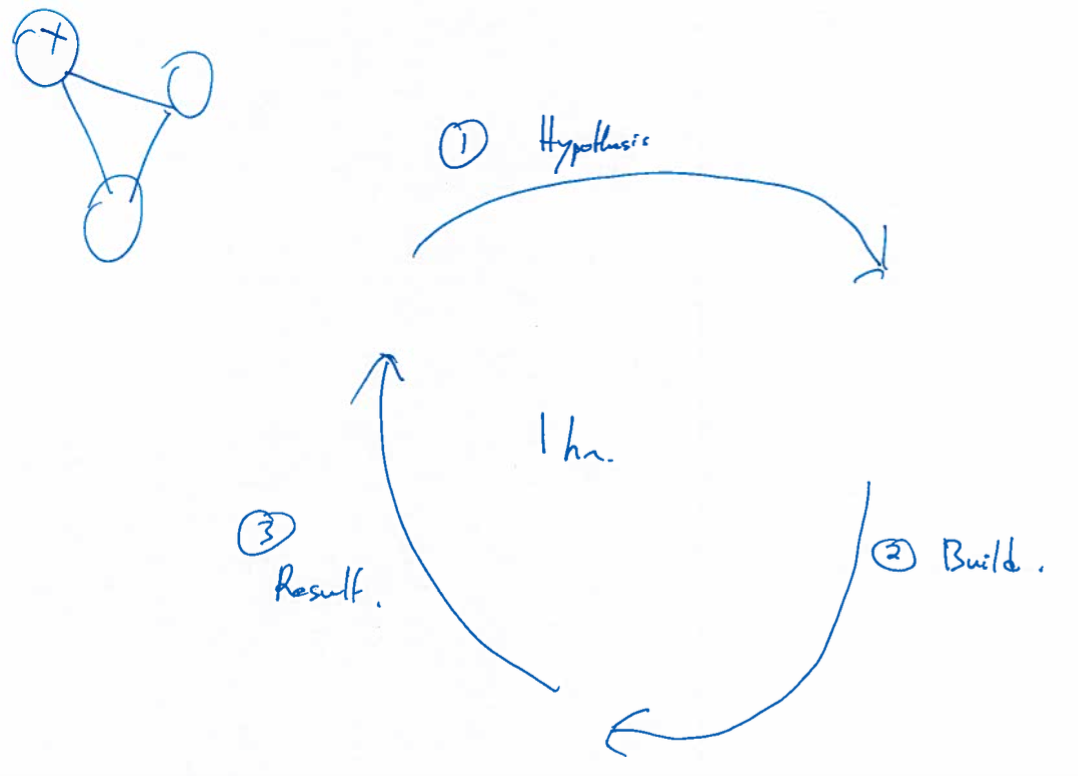 ① Hypothesis
1 hr.
② Build.
③
Result.